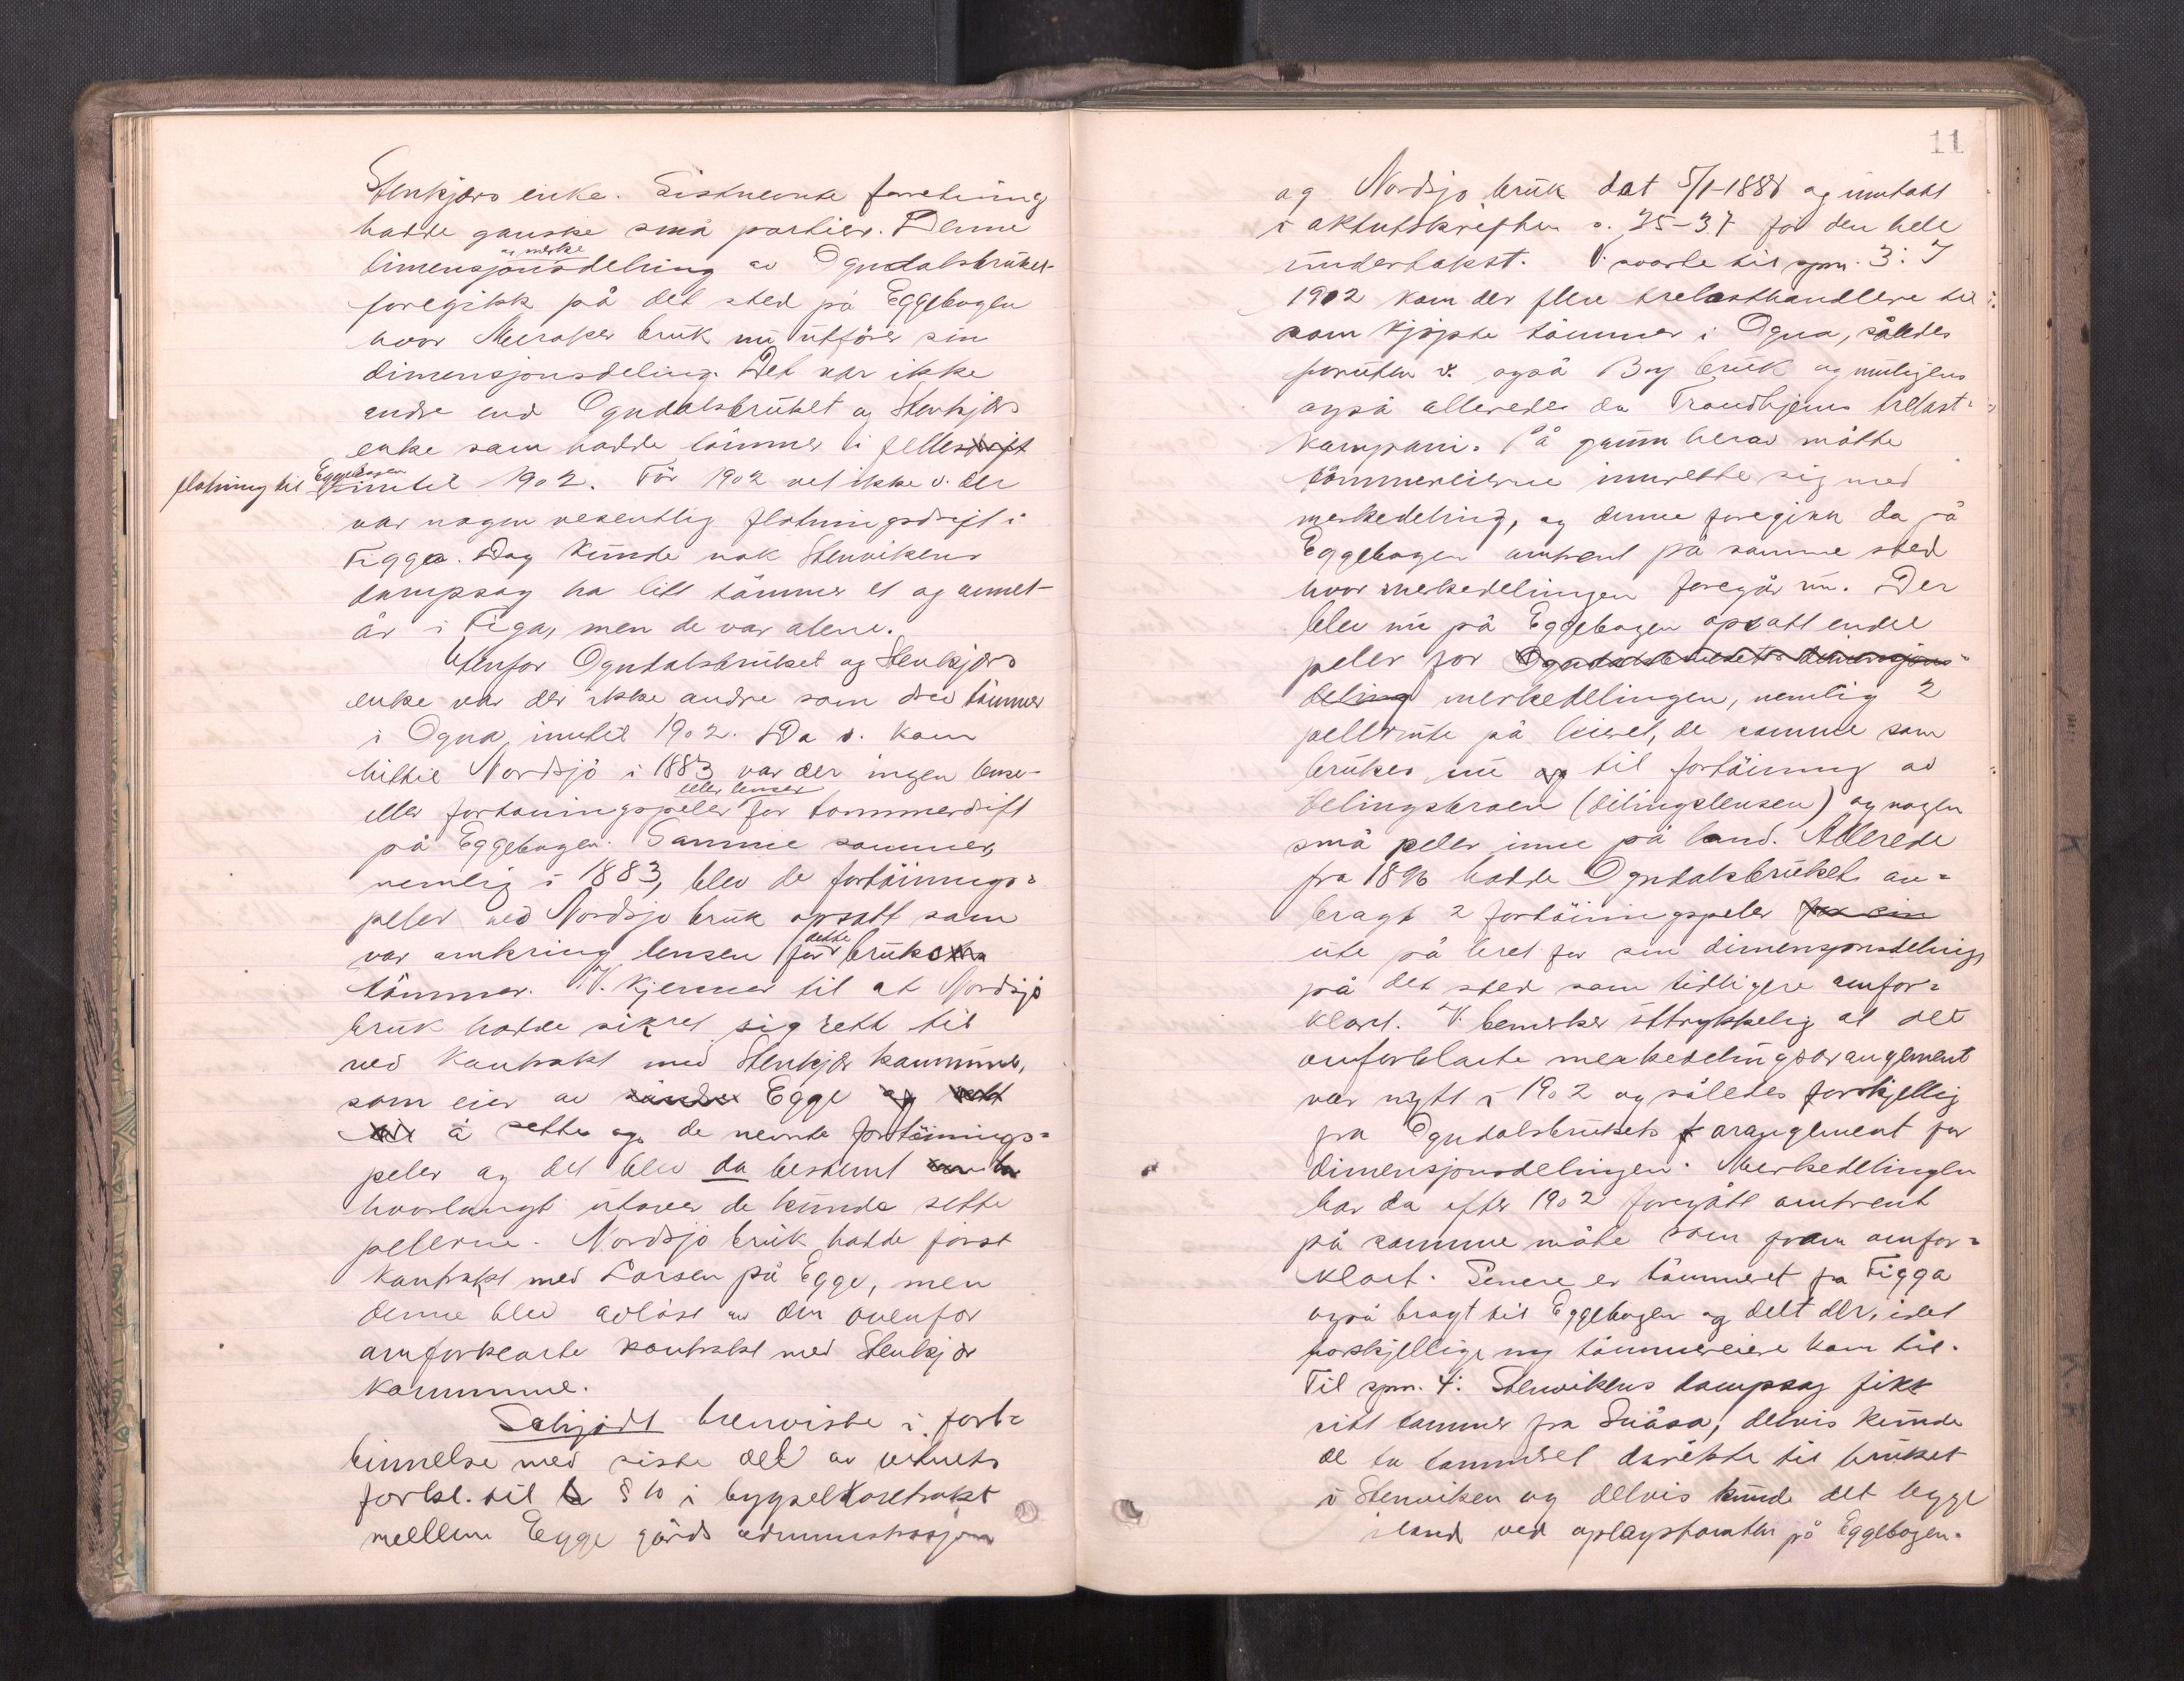 Stenkjærs enke. Sistnevnte forretning
hadde ganske små partier. Denne
og merke
dimensjonsdelning av Ogndalsbruket
foregikk på det sted på Eggebogen
hvor Meraker bruk nu utförer sin
dimensjonsdeling. Det var ikke
andre end Ogndalsbruket og Stenkjærs
enke som hadde tömmer i fellesdrift
flötning til Eggebogen inntil 1902. För 1902 vet ikke v. der
var nogen vesentlig flötningsdrift i
Figga. Dog kunde nok Stenvikens
dampsag ha litt tömmer et og annet
år i Figa, men de var alene.
Utenfor Ogndalsbruket og Stenkjærs
enke var der ikke andre som drev tömmer
i Ogna inntil 1902. Da v. kom
hittil Nordsjö i 1883 var der ingen lense-
eller lenser
eller fortöiningspeler for tömmerdrift
på Eggebogen. Samme sommer,
nemlig i 1883, blev de fortöinings=
peler ved Nordsjö bruk opsatt som
var omkring lensen for dette bruks
tömmer. V. kjenner til at Nordsjö
bruk hadde sikret sig rett til
ved kontrakt med Stenkjær kommune,
som eier av söndre Egge og rett
til å sette op de nevnte fortöinings=
peler og det blev da bestemt
hvorlangt utover de kunde sette
pelerne. Nordsjö bruk hadde först
kontrakt med Larsen på Egge, men
denne blev avlöst av den ovenfor
omforklarte kontrakt med Stenkjær
kommune.
Schjödt henviste i for=
binnelse med siste del av vidnets
forkl. til § 10 i bygselkontrakt
mellem Egge gårds administrasjon
11
og Nordsjö bruk dat 5/1-1888 og inntatt
i aktutskriften s. 35-37 for den hele
undertakst. V. svarte til spm. 3: I
1902 kom der flere trelasthandlere til
som kjöpte tömmer i Ogna, således
foruten v. også By bruk og muligens
også allerede da Trondhjems trelast=
kompani. På grunn herav måtte
tömmereierne innrette sig med
merkedeling, og denne foregikk da på
Eggebogen omtrent på samme sted
hvor merkedelingen foregår nu. Der
blev nu på Eggebogen opsatt endel
peler for Ogndalsbrukets dimensjons=
deling merkedelingen, nemlig 2
peller ute på leiret, de samme som
brukes nu og til fortöining av
delingsbroen (delingslensen) og nogen
små peler inne på land. Allerede
fra 1896 hadde Ogndalsbruket an=
bragt 2 fortöiningspeler for sin
ute på leret for sin dimensjonsdeling
på det sted som tidligere omfor=
klart. V. bemerker uttrykkelig at det
omforklarte merkedelingsarangement
var nytt i 1902 og således forskjellig
fra Ogndalsbrukets arangement for
dimensjonsdelingen. Merkedelingen
har da efter 1902 foregått omtrent
på samme måte som foran omfor=
klart. Senere er tömmeret fra Figga
også bragt til Eggebogen og delt der, idet
forskjellige ny tömmereiere kom til.
Til spm. 4: Stenvikens dampsag fikk
sitt tömmer fra Snåsa, delvis kunde
de ta tömmeret direkte til bruket
i Stenviken og delvis kunde det legge
iland ved oplagstomten på Eggebogen.